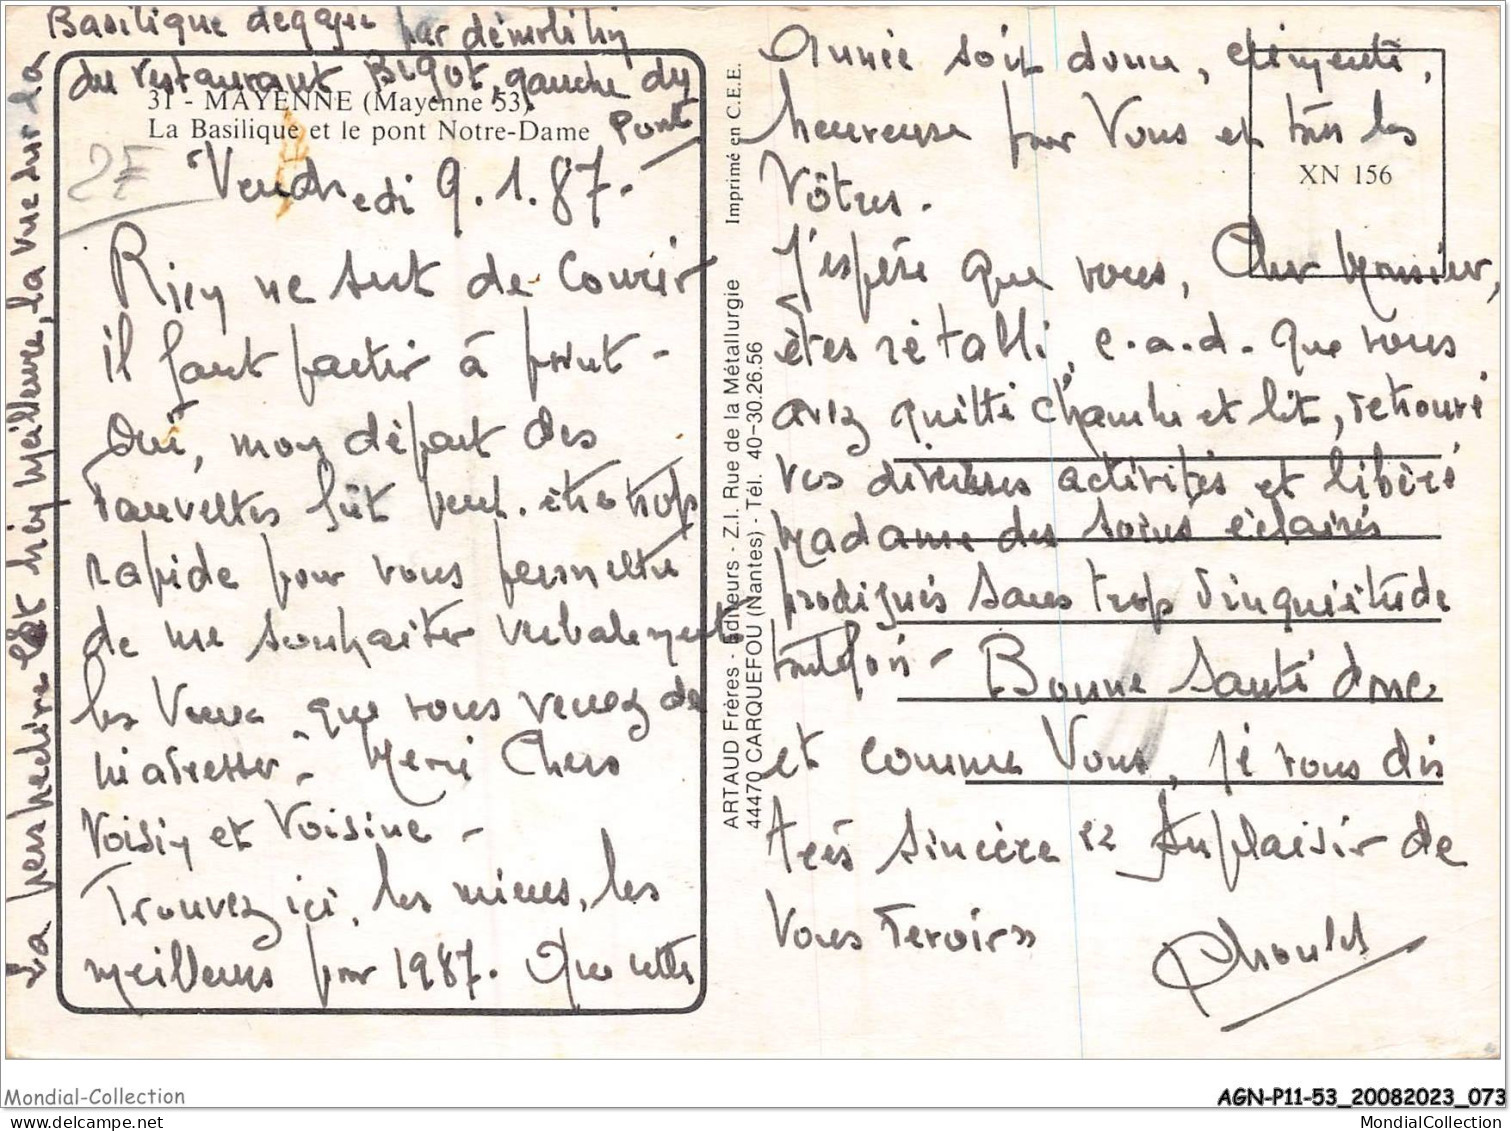 La perspective est bien meilleure, la vue sur la
Basilique dégagée par démolition
du restaurant Bigot, gauche du
Pont
31 - MAYENNE (Mayenne 53)
La Basilique et le pont Notre-Dame
2F
Vendredi 9.1.87-
Rien ne sert de courir
il faut partir à point -
Oui, mon départ des
Vauveltes fût peut-être trop
rapide pour vous permettre
de me souhaiter verbalement
les Vœux que vous venez de
m'adresser. Merci Chers
Voisin et Voisine -
Trouvez ici, les miens, les
meilleurs pour 1987. Que cette
Imprimé en C.E.E.
ARTAUD Frères - Editeurs - Z.I. Rue de la Métallurgie
44470 CARQUEFOU (Nantes) - Tél. 40-30.26.56
XN 156
Année soit douce, clémente,
heureuse pour Vous et tous les
Vôtres.
J'espère que vous, Cher Monsieur,
êtes rétabli, c.a.d. que vous
avez quitté chambre et lit, retrouvé
vos diverses activités et libéré
Madame des soins éclairés
prodigués sans trop d'inquiétude
toutefois - Bonne Santé donc
et comme Vous, je vous dis
Très sincère "Au plaisir de
Vous revoir"
Mondial-Collection
AGN-P11-53_20082023_073
MondialCollection.com
MondialCollection